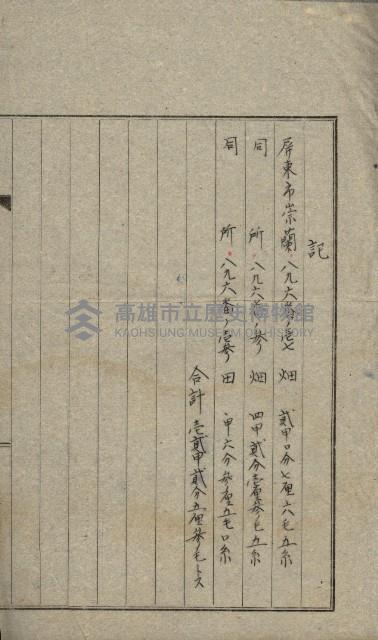 記
屏東市崇蘭 八九六番ノ壱七 畑 貳甲〇分七厘六毛五糸
同 所 八九六番ノ参 畑 四甲貳分壱厘参毛五糸
同 所 八九六番ノ壱参 田 甲六分参厘五毛〇糸
合計 壱貳甲貳分五厘参毛トス
高雄市立歷史博物館
KAOHSIUNG MUSEUM OF HISTORY